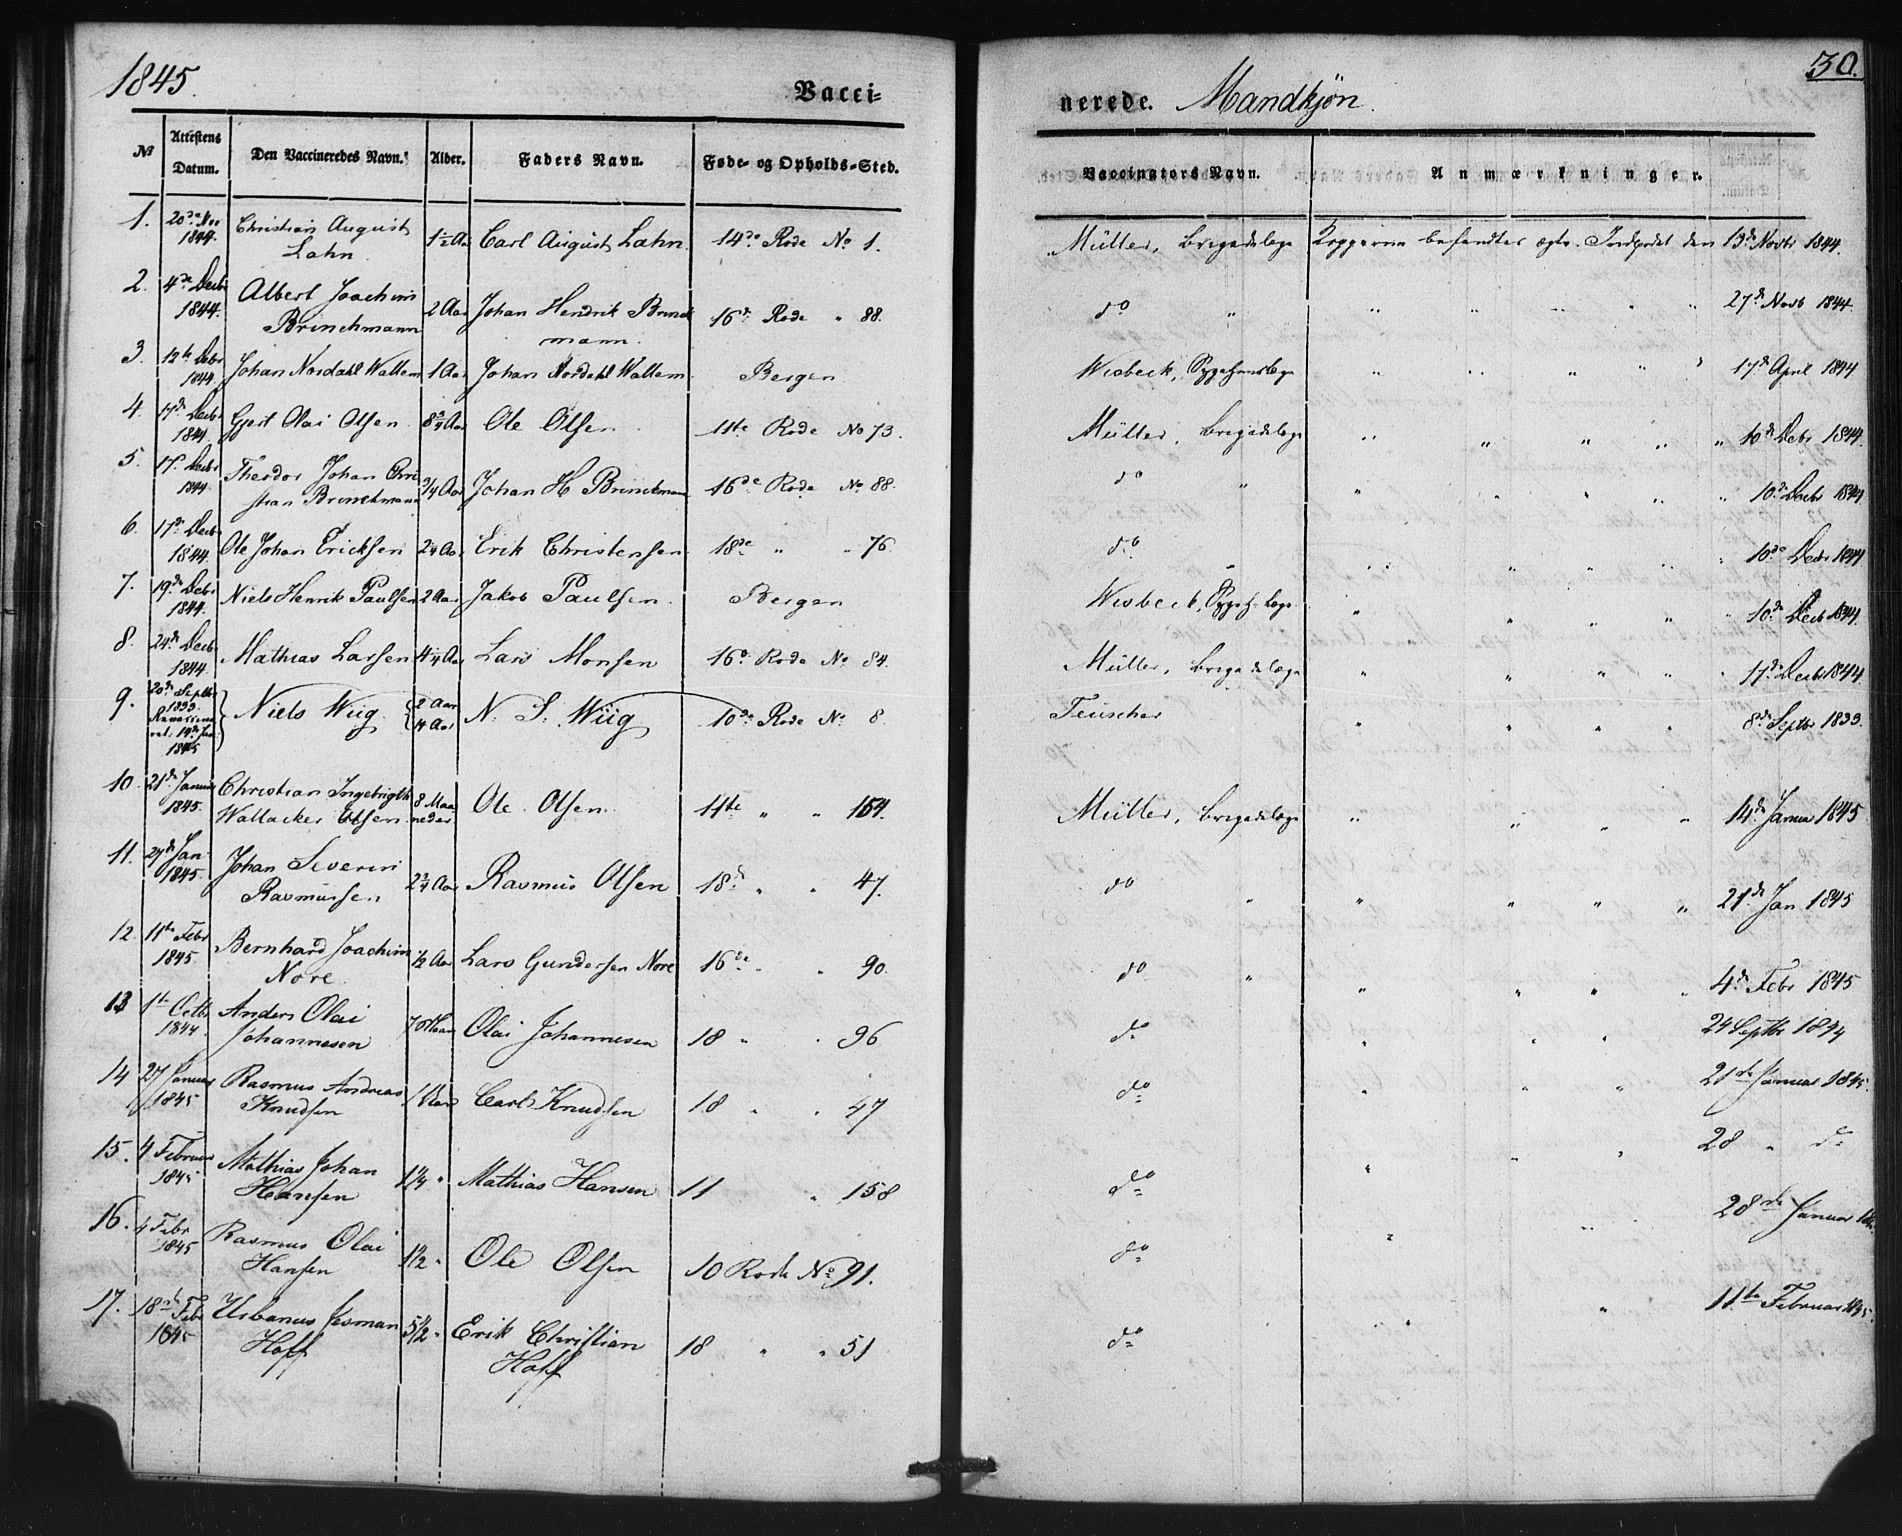 1845.
Vacci=
nerede. Mandkjøn.
30.
No
Attestens Datum.
Den Vaccineredes Navn.
Alder.
Faders Navn.
Føde- og Opholds-Sted.
Vaccinators Navn.
Anmærkninger.
1. 20de Nov 1844. Christian August Lahn. 1½ Aar Carl August Lahn. 14de Rode No 1. Müller, Brigadelæge Kopperne befandtes ægte. Indpodet den 13de Novbr 1844.
2. 4de Decbr 1844. Albert Joachim Brinchmann 2 Aar Johan Hendrik Brinckmann. 16de Rode " 88. do " " " " " " 27de Novb 1844.
3. 12te Debr 1844. Johan Nordahl Wallem 1 Aar Johan Nordahl Wallem Bergen Wisbeck, Sygehuuslæge " " " " " 17de April 1844
4. 17de Decbr 1844. Gjert Olai Olsen. 8¾ Aar Ole Olsen. 11te Rode No 73. Müller, Brigadelæge " " " " " 10de Debr 1844.
5. 17de Decbr 1844 Theodor Johan Christian Brinckmann ¾ Aar Johan H Brinckmann 16de Rode No 88. do " " " " " " 10de Decbr 1844
6. 17de Decbr 1844. Ole Johan Ericksen 2¼ Aar Erik Christensen. 18de " " 76. do " " " " " " 10de Debr 1844
7. 19de Debr 1844. Niels Henrik Paulsen 2 Aar Jakob Paulsen. Bergen Wisbeck, Sygeh-Læge " " " " 10de Decb 1844.
8. 24de Decbr 1844. Mathias Larsen 4¼ Aar Lars Monsen 16de Rode No 84. Müller, Brigadelæge " " " " " 17de Decbr 1844.
9. 20de Septbr 1833. 14de Jan. 1845 Niels Wiig. 2 Aar 14 Aar N. S. Wiig 10de Rode No 8. Teuscher " " " " 8de Septbr 1833.
10. 21de Januar 1845. Christian Ingebrigth Wallacker Olsen. 8 Maaneder Ole Olsen. 11te " " 154. Müller, Brigadelæge " " " " 14de Januar 1845
11. 27de Jan. 1845. Johan Severin Rasmussen 2¾ Aar Rasmus Olsen 18de " " 47. do " " " " " 21de Jan 1845
12. 11te Febr 1845. Bernhard Joachim Nore. ½ Aar Lars Gundersen Nore 16de " " 90. do " " " " " 4de Febr 1845
13 1te Octbr 1844. Anders Olai Johannesen 7 Maan Olai Johannesen 18 " " 96 do " " " 24 Septbr 1844
14 27 Januar 1845 Rasmus Andreas Knudsen 1 Aar Carl Knudsen 18 " " 47 do " " " 21de Januar 1845.
15. 4 Februar 1845 Mathias Johan Hansen 1¼ " Mathias Hansen 11 " 158 do " " " 28 " do
16. 4 Febr 1845 Rasmus Olai Hansen 1½ " Ole Olsen 10 Rode No 91. do " " 28de Januar
17. 18de Febr 1845 Urbanus Jesman Hoff 5½ " Erik Christian Hoff 18 " " 51 do " " 11te Februar 1845.